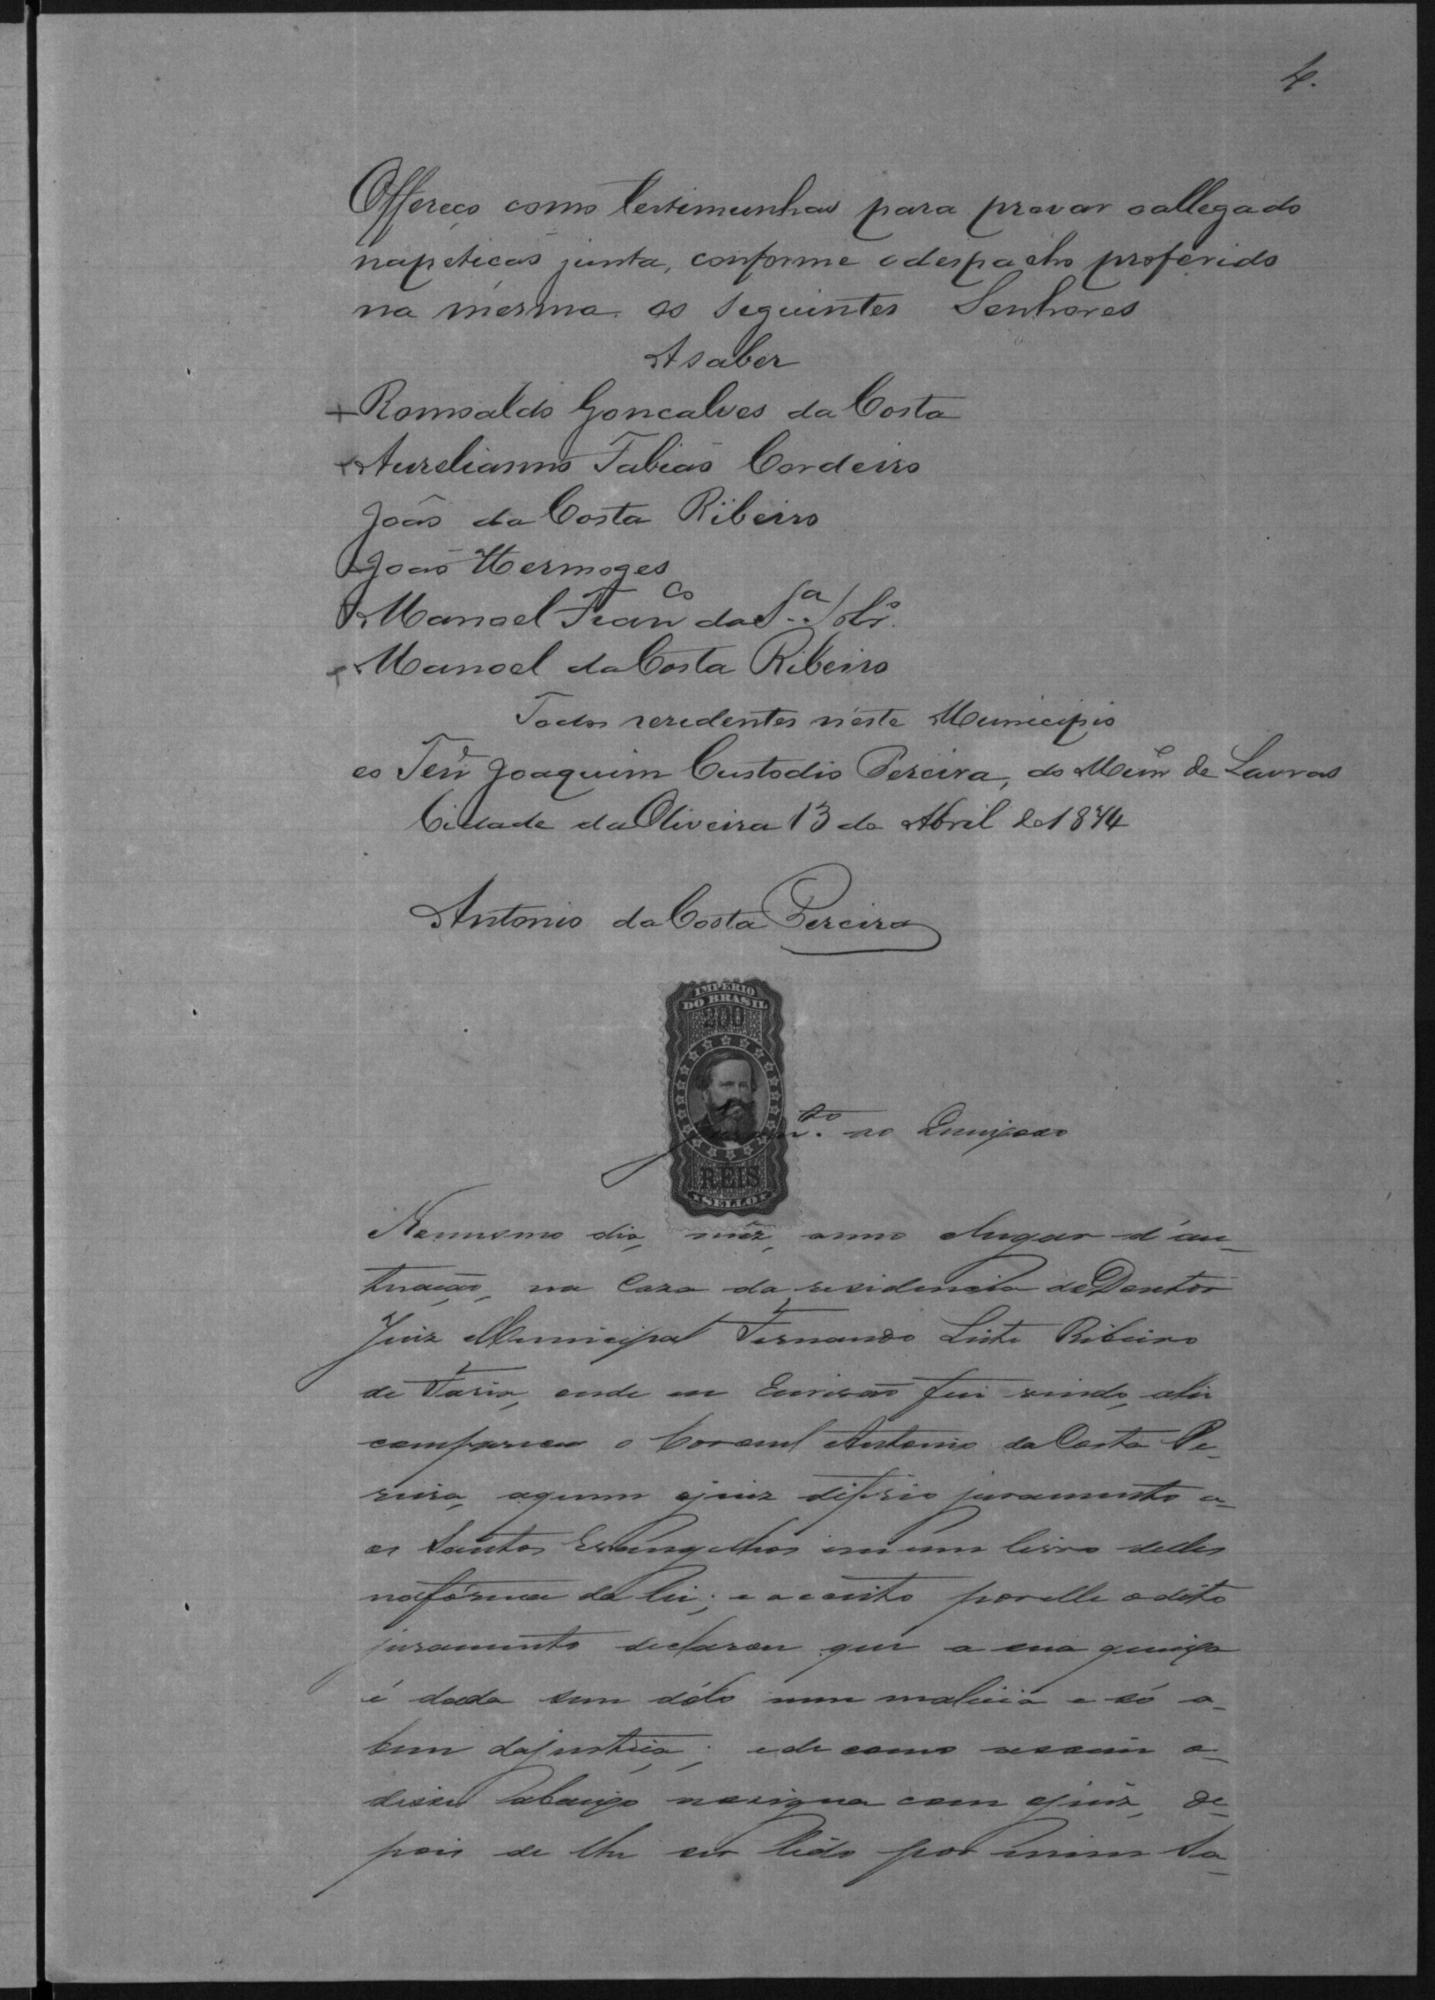 4.
Offereço como testimunhas para provar o allegado
na petição junta, conforme o despacho proferido
na mesma os seguintes Senhores
A saber
Romoaldo Goncalves da Costa
Aurelianno Fabião Cordeiro
João da Costa Ribeiro
João Hermoges
Manoel Fran.co da S.a Sobr.o
Manoel da Costa Ribeiro
Todos resedentes néste Municipio
e o Ten.e Joaquim Custodio Pereira, do Mun.e de Lavras
Cidade da Oliveira 13 de Abril de 1874
Antonio da Costa Pereira
IMPERIO
DO BRASIL
200
REIS
SELLO
Juram.to ao Queixoso
No mesmo dia, mêz, anno e lugar d'au-
tuação, na Caza da residencia do Doutor
Juiz Municipal Fernando Leite Ribeiro
de Faria, onde eu Escrivão fui vindo, ahi
compareceu o Coronel Antonio da Costa Pe-
reira, a quem o juiz diferio juramento a-
os Santos Evangelhos em um livro delles
na fórma da lei; e acceito por elle o dito
juramento declarou que a sua queixa
é dada sem dólo nem malicia e só a-
bem da justiça; e de como assim o-
disse abaixo assigna com o juiz, de-
pois de lhe ser lido por mim Sa-